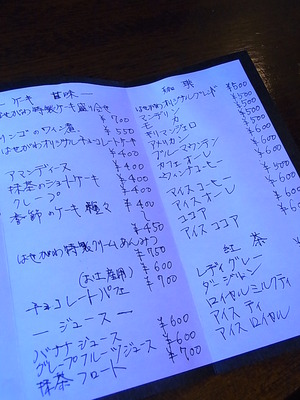 ケーキ 甘味 —
はせがわ特製ケーキ盛り合せ
¥700
リンゴのワイン煮 ¥550
はせがわオリジナルチョコレートケーキ
¥400
アマンディーヌ ¥400
抹茶のショートケーキ ¥400
クレープ ¥400
季節のケーキ種々 ¥400
〜
¥450
はせがわ特製クリームあんみつ
¥750
(お土産用) ¥600
チョコレートパフェ ¥700
— ジュース —
バナナジュース ¥600
グレープフルーツジュース ¥600
抹茶フロート ¥700
珈琲
はせがわオリジナルブレンド ¥500
マンデリン ¥550
モカ
キリマンジェロ
アメリカン
ブルーマウンテン
カフェオーレ
ウィンナコーヒー
アイスコーヒー
アイスオーレ
ココア
アイスココア
紅茶
レディグレー
ダージリン
ロイヤルミルクティ
アイスティ
アイスロイヤル